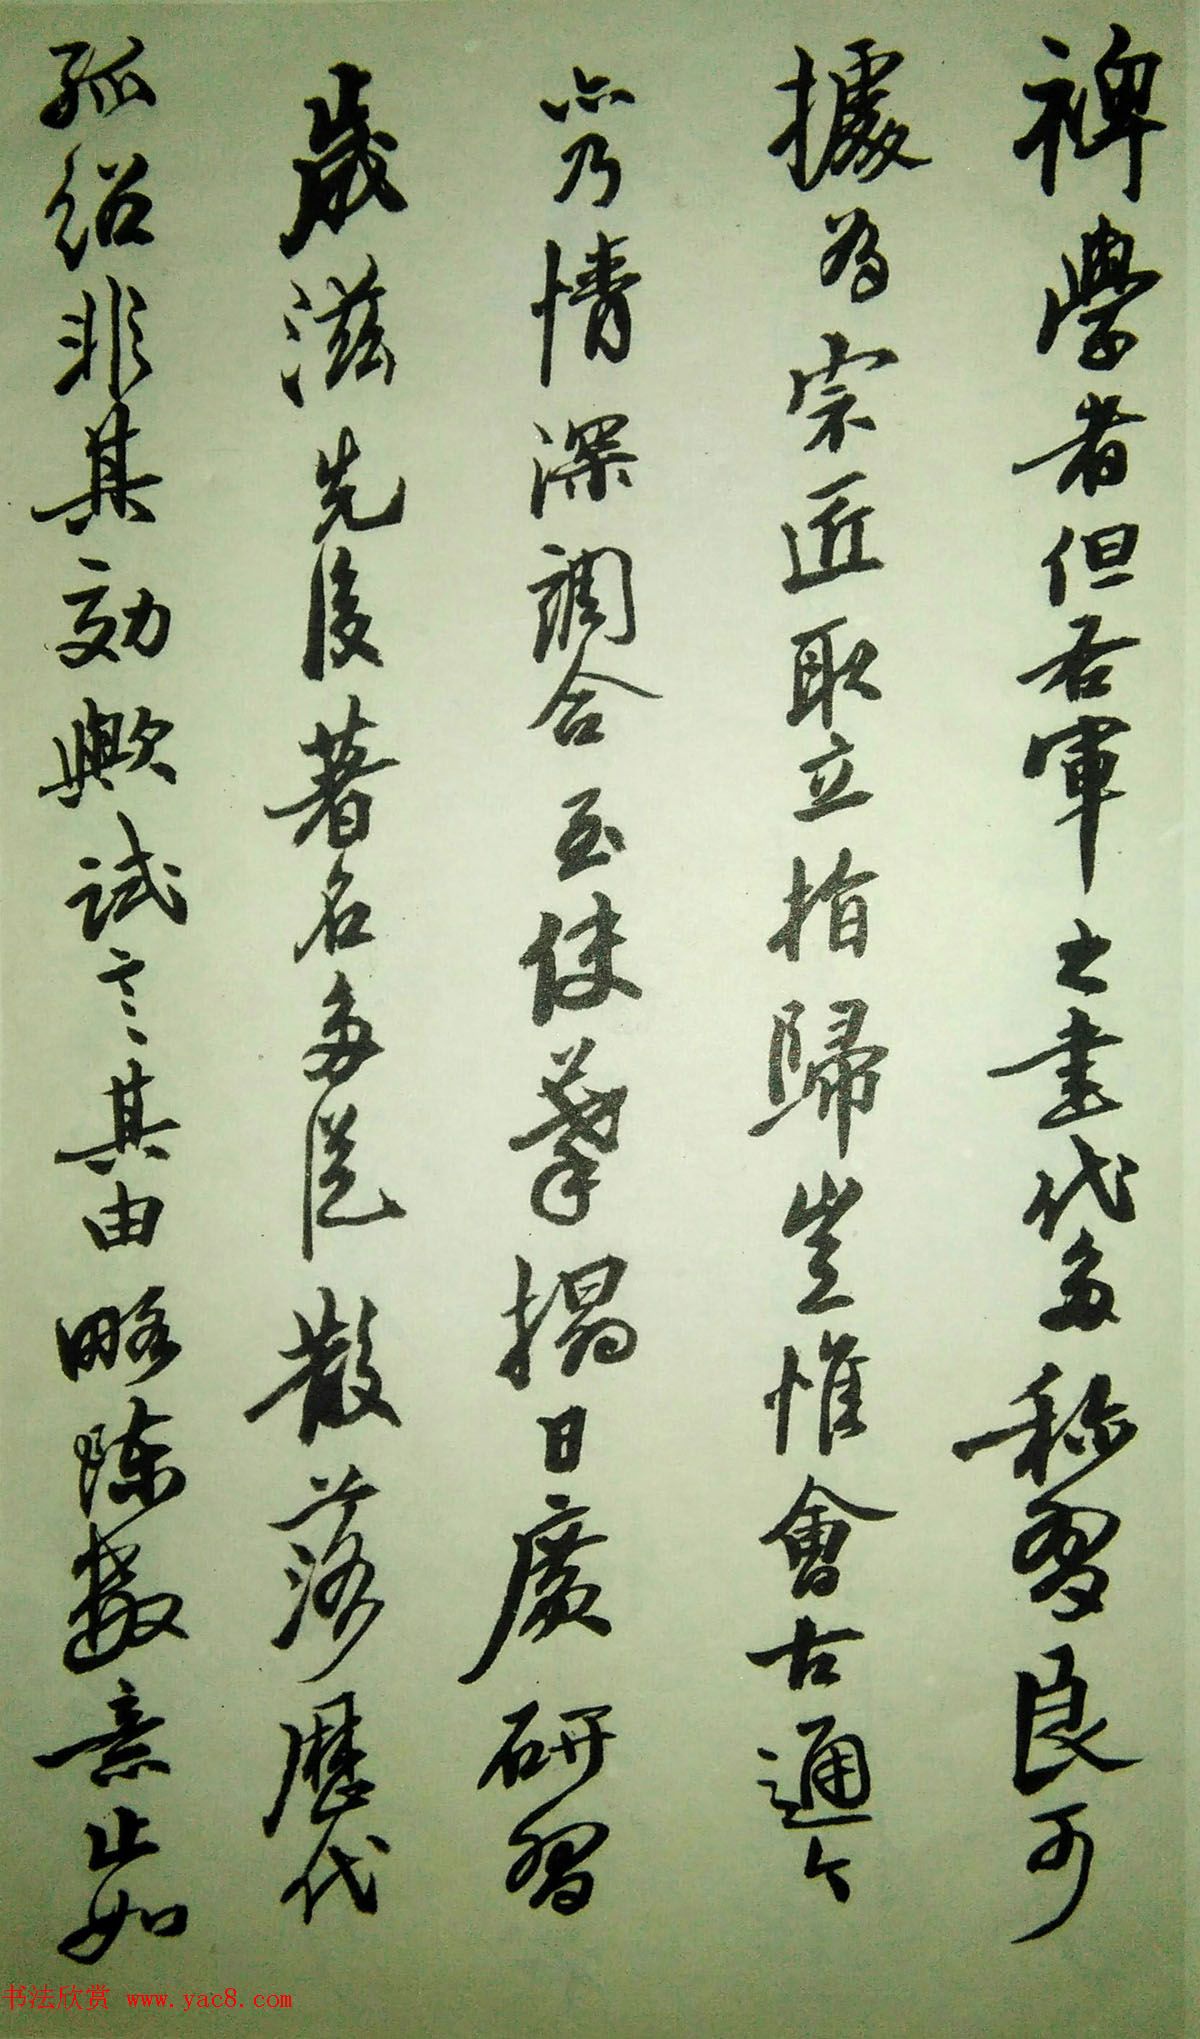 裨學者但右軍之書代多稱習良可
據為宗匠取立指歸豈惟會古通今
亦乃情深調合至使摹搨日廣研習
歲滋先後著名多從散落歷代
孤紹非其効歟試言其由略陳數意止如
书法欣赏 www.yac8.com